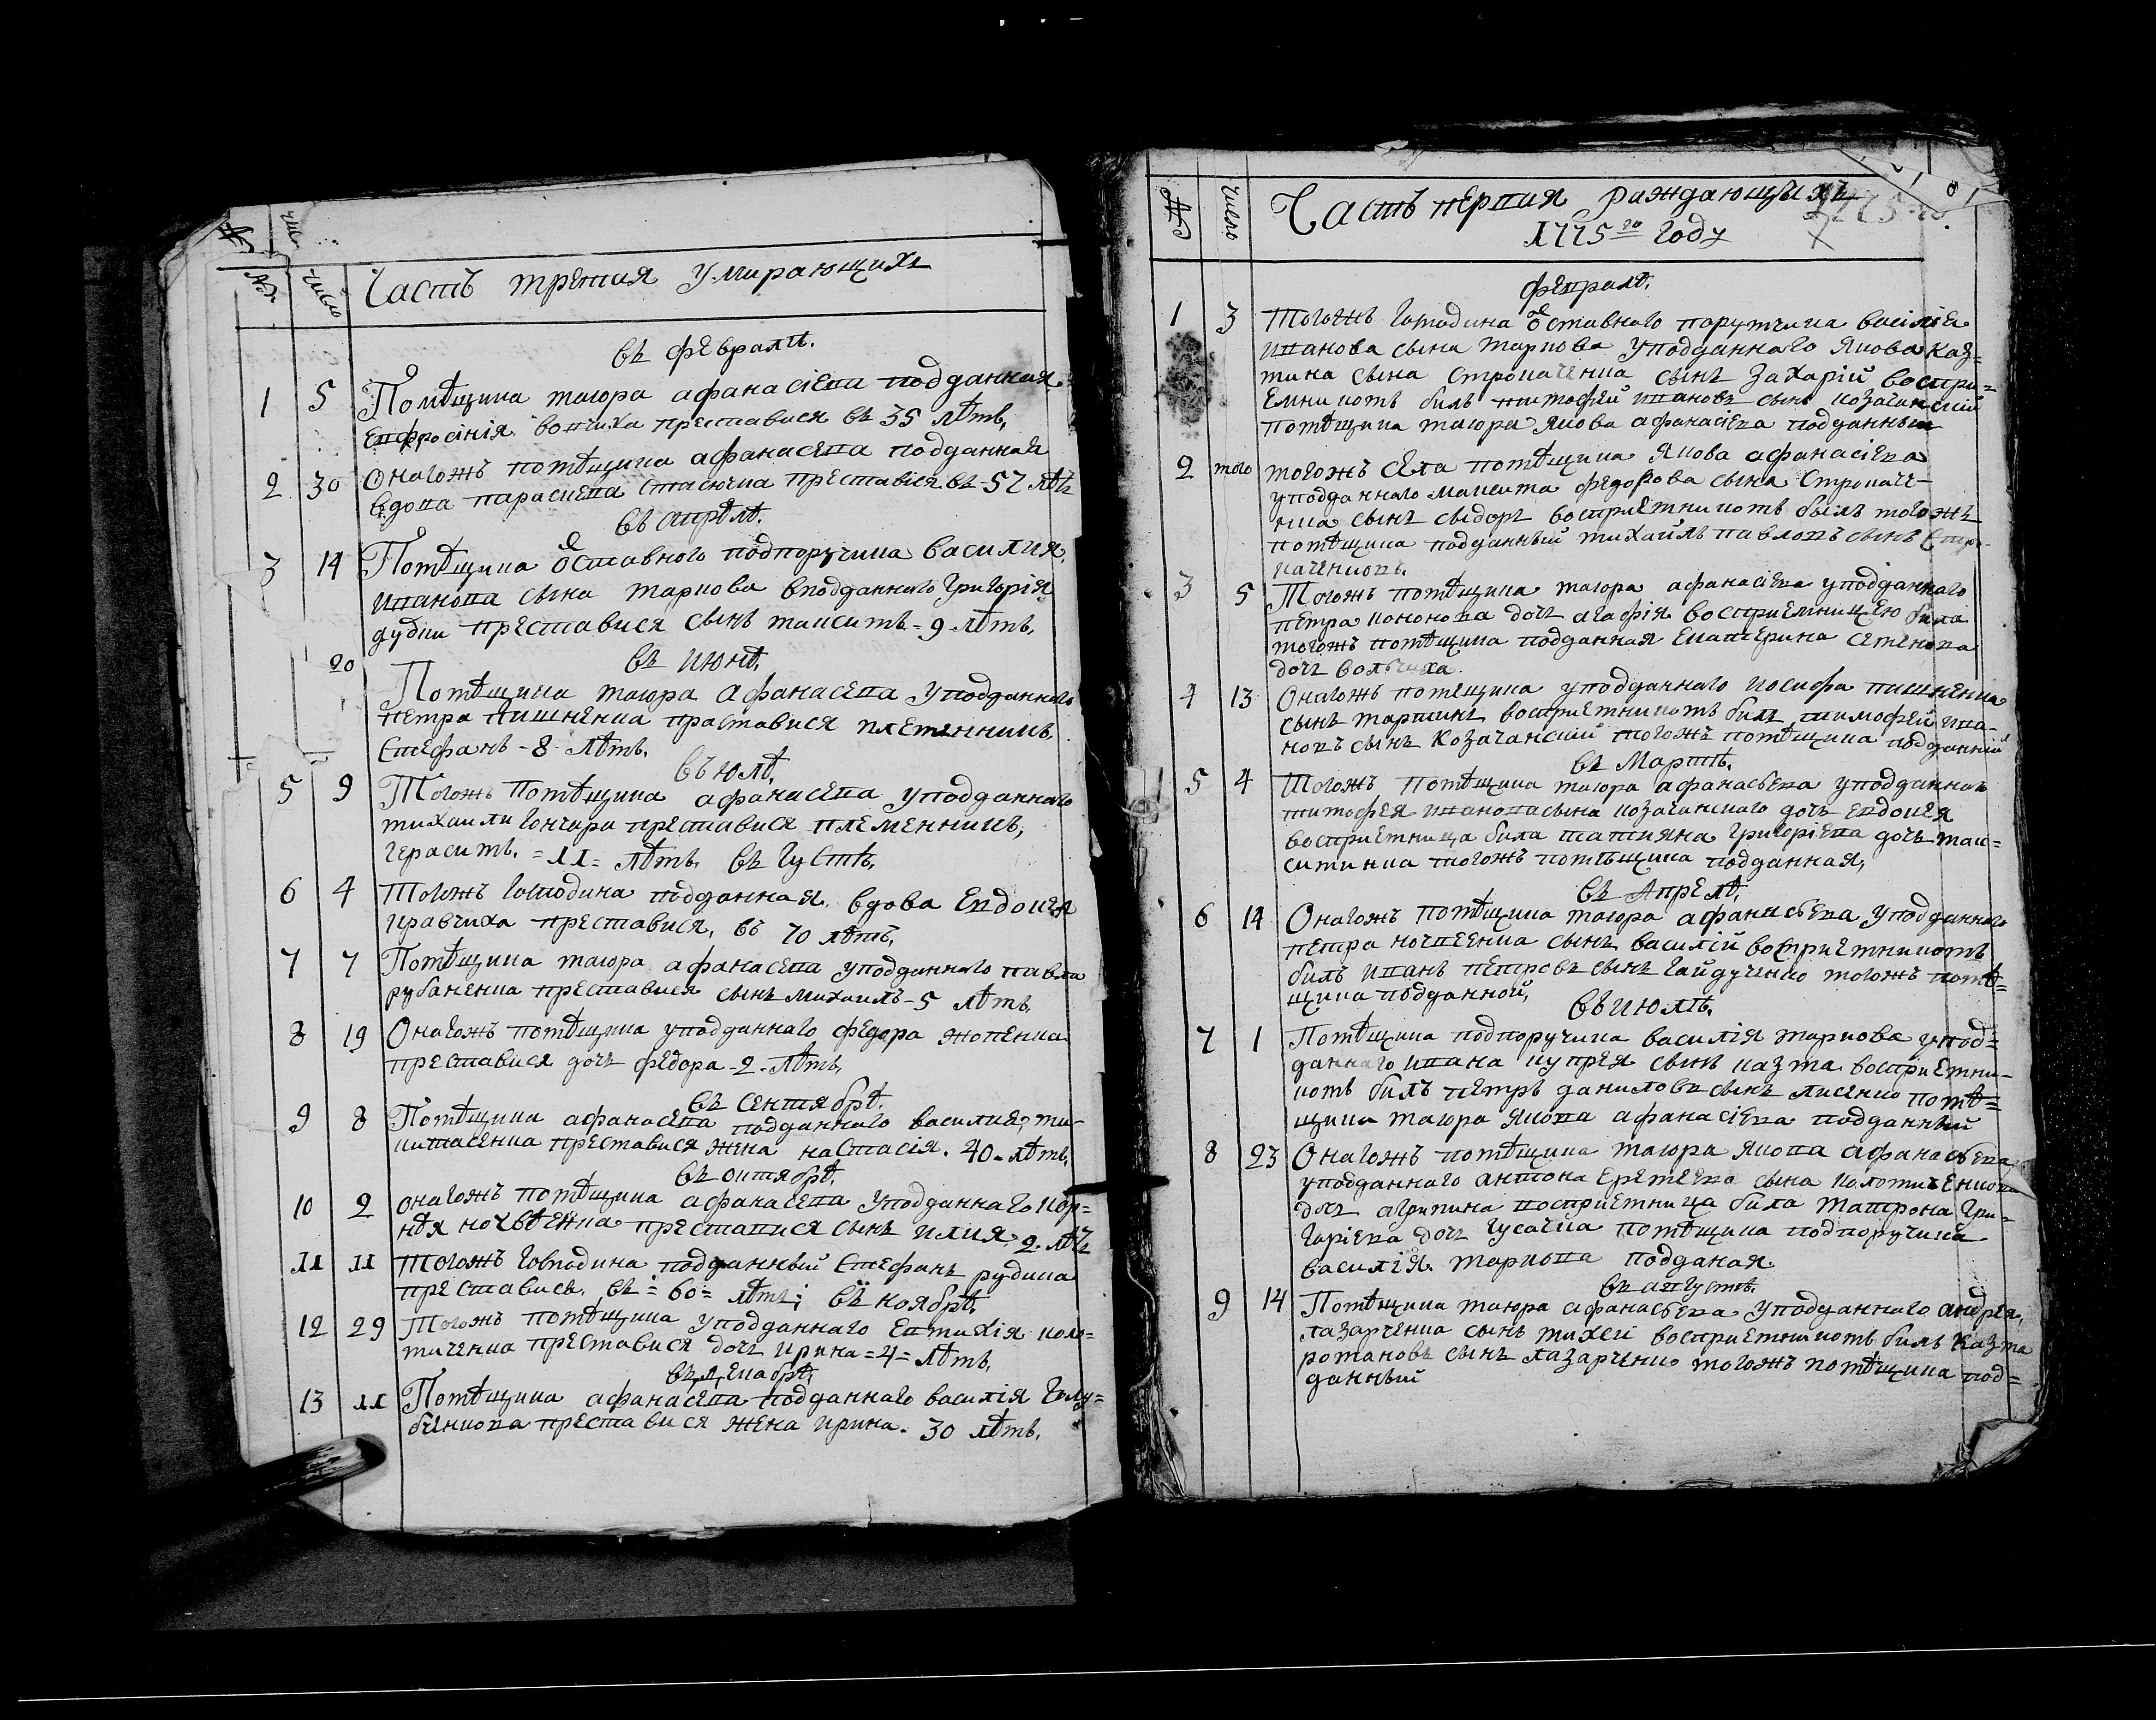 № Число Часть третия умирающихъ
въ февралѣ.
1 5 Помѣщика маіора афанасіева подданная
евфросінія вовчиха преставися въ 35 лѣтъ,
2 30 Онагожъ помѣщика афанасева подданная
вдова параскева стасюкна преставися въ 57 лѣтъ
въ апрѣлѣ.
3 14 Помѣщика оставного подпоручика василия
иванова сына маркова вподданного григорія
дудки преставися сынъ максимъ - 9 лѣтъ,
въ июнѣ,
20 Помѣщика маіора афанасева уподданного
петра пишненка праставися племенникъ,
стефанъ - 8 лѣтъ,
въ юлѣ,
5 9 Тогожъ помѣщика афанасева уподданного
михаили гончара преставися племенникъ,
герасимъ, = 11 = лѣтъ, въ густѣ,
6 4 Тогожъ господина подданная вдова евдокея
кравчиха преставися, въ 70 лѣтъ,
7 7 Помѣщика маіора афанасева уподданного павла
рубаненка преставися сынъ михаилъ - 5 лѣтъ,
8 19 Онагожъ помѣщика уподданного федора
преставися дочь федора - 2 - лѣтъ,
въ сентябрѣ,
9 8 Помѣщика афанасева подданного василия, ми-
китасенка преставися жена настасія. 40 - лѣтъ,
въ октябрѣ,
10 2 онагожъ помѣщика афанасева уподданнаго кор=
нѣя преставися сынъ илия, 2 лѣтъ
11 11 тогожъ господина подданный стефанъ рудика
преставись, въ = 60 = лѣтъ; въ ноябрѣ,
12 29 Тогожъ помѣщика уподданного евтихія коло=
миченка преставися дочь ирина = 4 = лѣтъ,
въ декабрѣ,
13 11 Помѣщика афанасева подданного василія голу=
бенкова преставися жена ирина. 30 лѣтъ,
№ Число Часть первая раждающихъ
1775 го году
февралѣ,
1 3 Тогожъ гоподина оставного порутчика василіа
иванова сына маркова уподданного якова коз=
мина сына стрюкаченка сынъ захарій воспри=
емникомъ билъ тимофей ивановъ сынъ козачанскій
помѣщика маіора якова афанасіева подданный
2 того тогожъ села помѣщика якова афанасіева
уподданного никита федорова сына стрюкаче-
нка сынъ сыдоръ восприемникомъ билъ тогожъ
помѣщика подданный михайлъ павловъ сынъ стрю-
каченковъ.
3 5 Тогожъ помѣщика маіора афанасіева уподданного
петра кононова дочь агафія восприемницею била
тогожъ помѣщика подданная екатерина семенова
дочь вольчиха.
4 13 Онагожъ помещика уподданного иосифа пишненка
сынъ мартинъ восприемникомъ билъ тимофей ива-
новъ сынъ козачанскій тогожъ помѣщика подданній
въ мартѣ,
5 4 Тогожъ помѣщика маіора афанасьева уподданнаго
тимофея ивановасына козачанского дочь евдокея
восприемница била татияна григоріева дочь мак=
симинка тогожъ помѣщика подданная,
въ апрелѣ,
6 14 Онагожъ помѣщика маіора афанасьева уподданного
петра сынъ василій восприемникомъ
билъ иванъ петровъ сынъ гайдученко тогожъ помѣ=
щика подданной, въ июлѣ,
7 1 Помѣщика подпоручика василія маркова упод=
данного ивана купрея сынъ казма восприемни-
комъ билъ петръ даниловъ сынъ лисенко помѣ=
щика маіора якова афанасіева подданный
8 23 Онагожъ помѣщика маіора якова афанасьева
уподданного антона еремеева сына коломиченкова
дочь агрипина восприемница била матрона гри=
горіева дочь гусачка помѣщика подпоручика
василія маркова подданая.
въ августѣ,
9 14 Помѣщика маіора афанасьева уподданного андрея,
лазарченка сынъ михей восприемникомъ билъ казма
романовъ сынъ лазарченко тогожъ помѣщика под=
данный